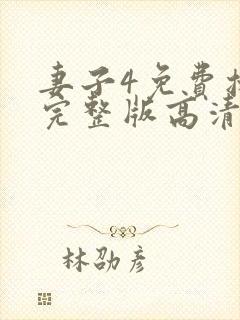 妻子4免费
完整版高清
林劭彦